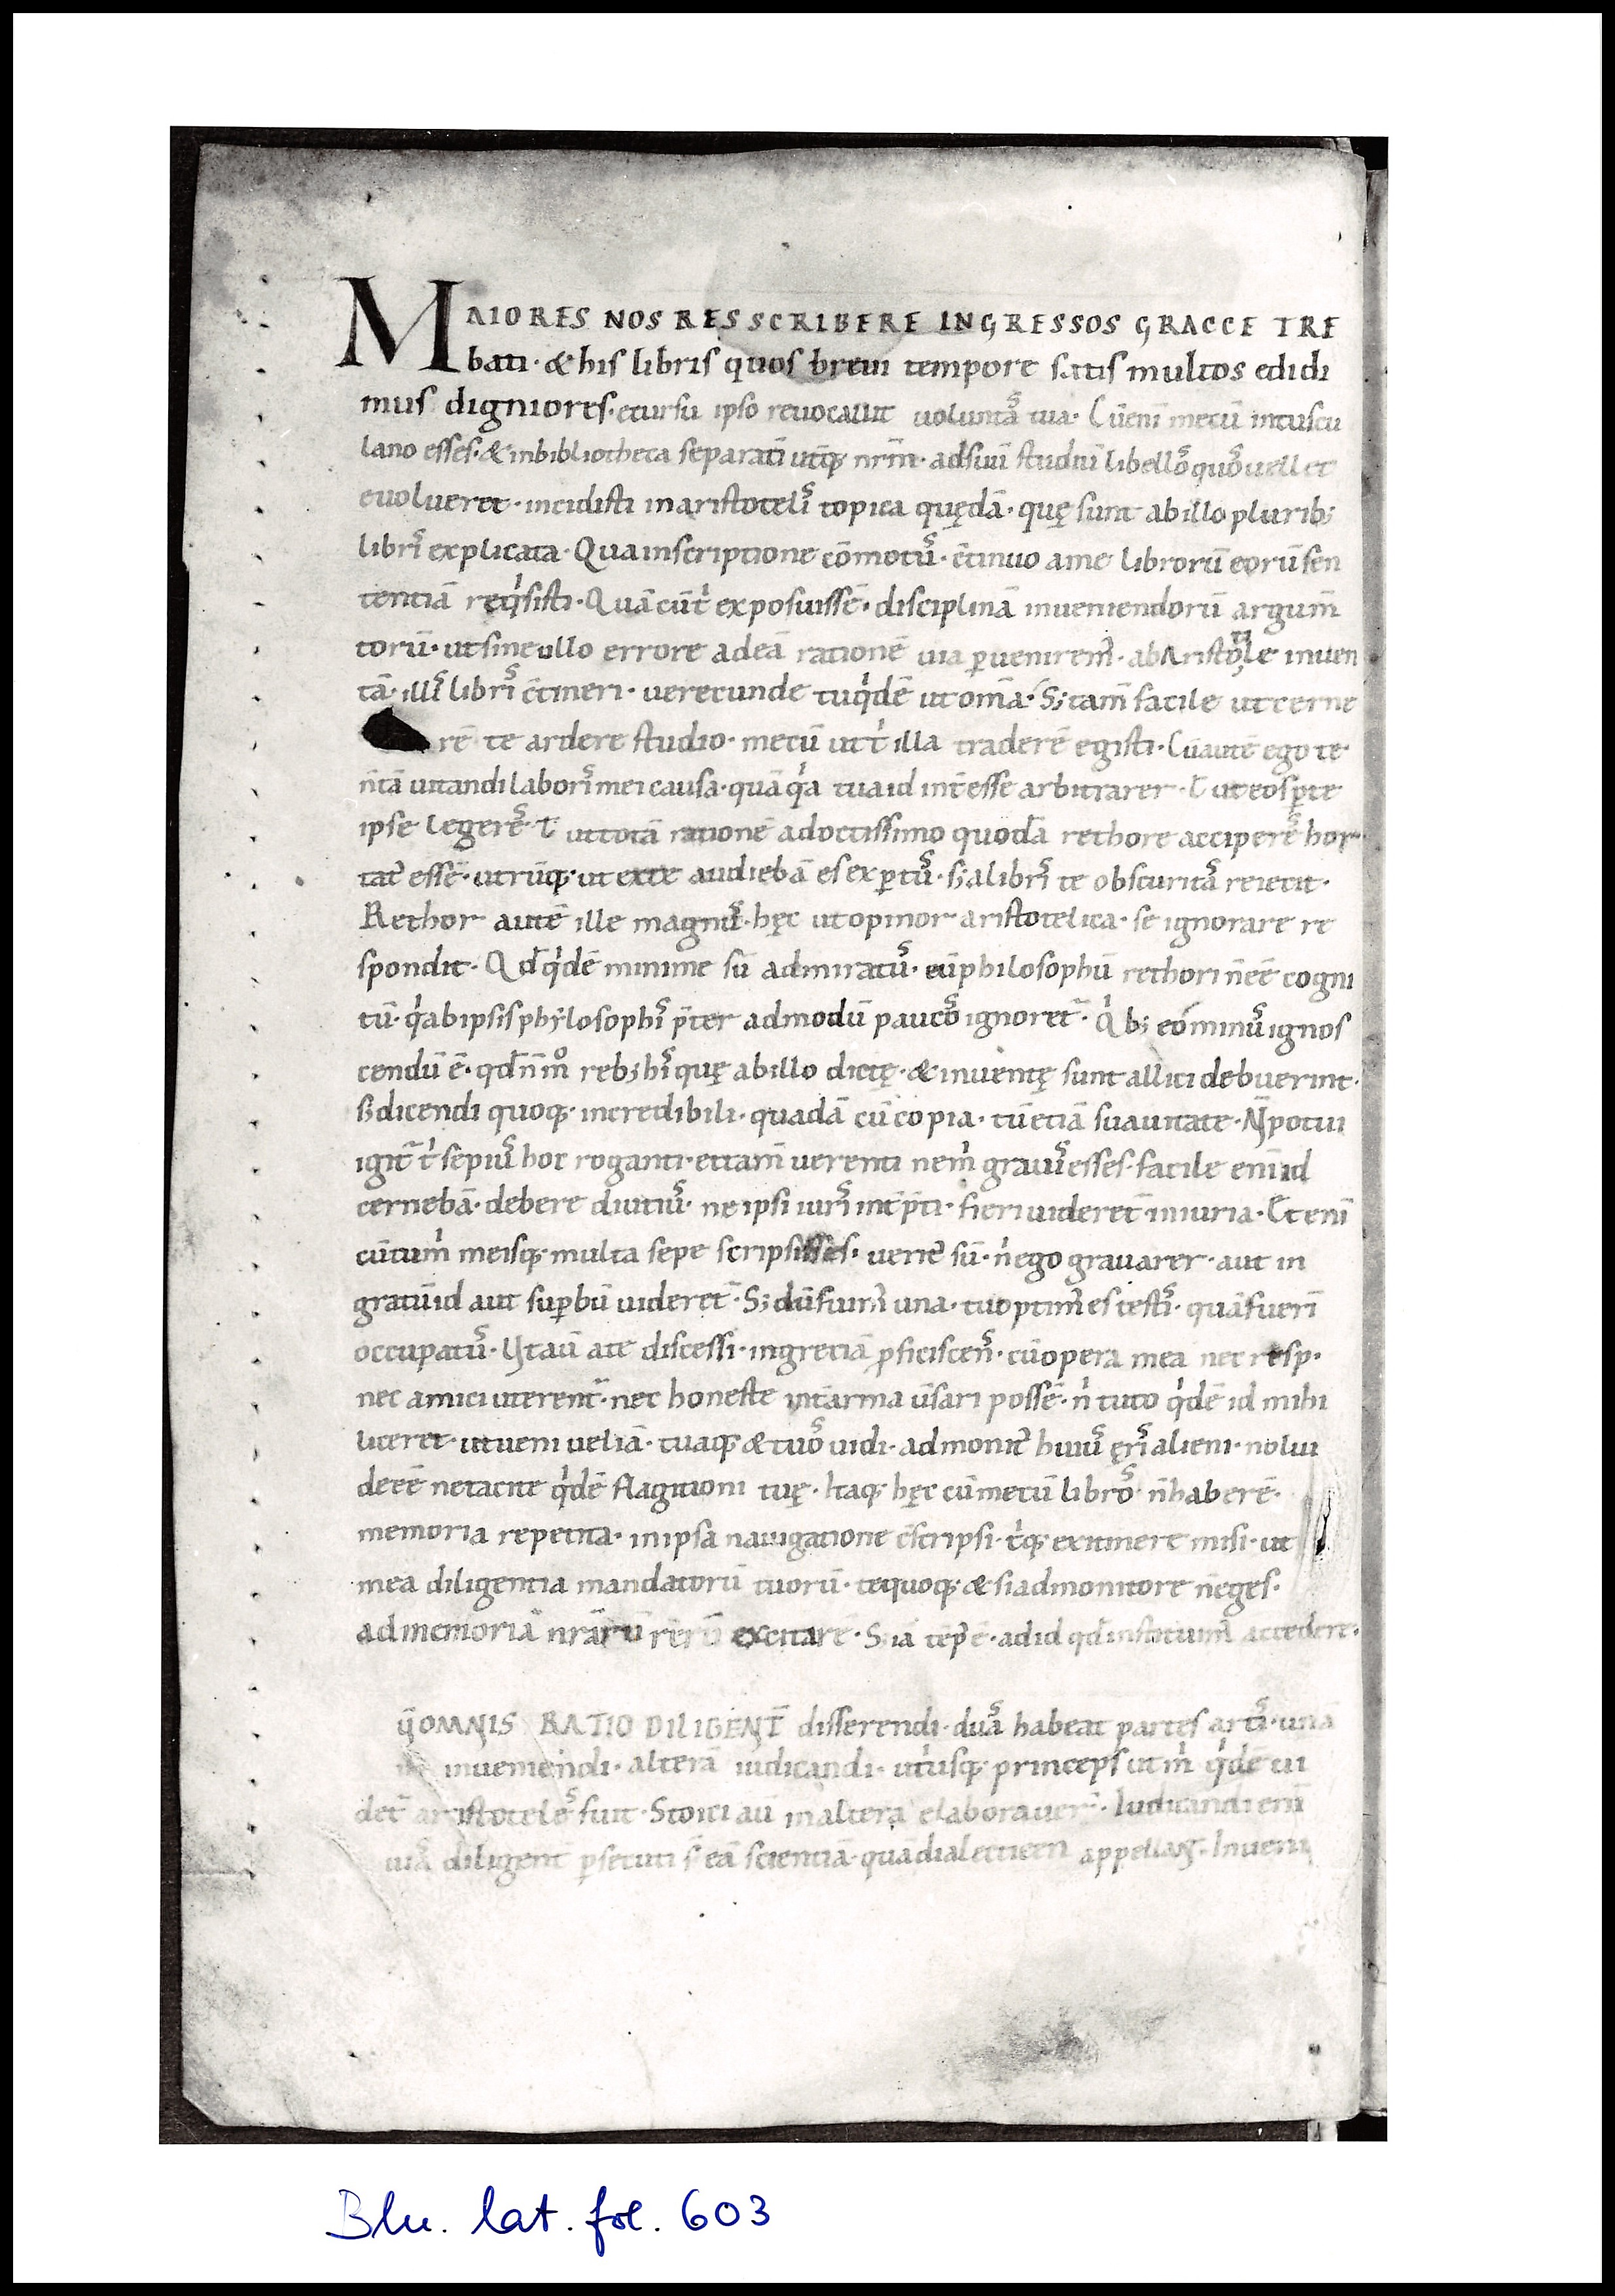 MAIORES NOS RES SCRIBERE INGRESSOS GRACCE TRE
bati · & his libris quos brevi tempore satis multos edidi
mus digniores · ecursu ipso revocavit volunta᷒ tua · Cū enī mecū intuscu
lano esses · & inbibliotheca separatī utq̄ꝫ nr̄m · adsuū studiū libello᷒ quo᷒ vellet
evolveret · incidisti inaristoteli᷒ topica quędā · quę sunt abillo plurib;
libri᷒ explicata · Qua inscriptione cōmotu᷒ · c̄tinuo ame librorū eorū sen
tentiā reqͥsisti · Quā cū tͥ exposuissē · disciplinā inveniendorū argum̄
torū · ut sine ullo errore adeā rationē via ꝑvenirem᷒ · abAristotile inven
tā · illi᷒ libri᷒ c̄tineri · verecunde tu qͥdē ut om̄a · S; tam̄ facile ut cerne
rē te ardere studio · mecū ut tͥ illa traderē egisti · Cū autē ego te ·
n̄tā vitandi labori᷒ mei causa · quā qͥa tua id int̄esse arbitrarer · ł ut eos ꝑ te
ipse legere᷒ · ł ut totā rationē adoctissimo quodā rethore accipere᷒ hor
tat᷒ essē · utrūqꝫ · ut exte audiebā es exꝑtu᷒ · s; alibri᷒ te obscurita᷒ reiecit ·
Rethor autē ille magnu᷒ · hęc ut opinor aristotelica · se ignorare re
spondit · Qd̄ qͥdē minime sū admiratu᷒ · eū philosophū rethori n̄ eē cogni
tū · qͥ abipsis phylosophi᷒ p̄ter admodū pauco᷒ ignoret᷒ · Qͥb; eo minu᷒ ignos
cendū ē · qd̄ n̄ m̊ reb; hi᷒ quę abillo dictę · & inventę sunt allici debuerint ·
s; dicendi quoqꝫ · incredibili · quadā cū copia · tū etiā suavitate · N̄ potui
igit᷒ tͥ sepiu᷒ hoc roganti · et tam̄ verenti ne mͥ gravi᷒ esses · facile enī id
cernebā · debere diutiu᷒ · ne ipsi iuri᷒ int̄p̄ti · fieri videret᷒ iniuria · Et enī
cū tu mͥ meisqꝫ · multa sepe scripsisses · verit᷒ sū · nͥ ego gravarer · aut in
gratū id aut suꝑbū videret᷒ · S; dū fuim᷒ una · tu optim᷒ es testi᷒ · quā fueri᷒
occupatu᷒ · Ut aū ate discessi · ingreciā ꝓficiscen᷒ · cū opera mea nec resp ·
nec amici uterent᷒ · nec honeste int̄ arma v̄sari possē · nͥ tuto qͥdē id mihi
liceret · ut veni veliā · tuaqꝫ & tuo᷒ vidi · admonit᷒ huiu᷒ ęri᷒ alieni · nolui
deeē netacite qͥdē flagitioni tuę · Itaqꝫ hęc cū mecū libro᷒ n̄ haberē ·
memoria repetita · inipsa navigatione c̄scripsi · tͥqꝫ exitinere misi · ut
mea diligentia mandatorū tuorū · te quoqꝫ & si admonitore n̄ eges ·
ad memoriā nr̄arū rerū excitarē · S; iā tēp᷒ ē · ad id qd̄ instituim᷒ accedere ·
q̄OMNIS RATIO DILIGENT̄ disserendi · dua᷒ habeat partes arti᷒ · unā
inveniendi · alterā iudicandi · utͥusqꝫ princeps ut mͥ qͥdē vi
det᷒ aristotele᷒ fuit · Stoici aū in altera elaboraver̄ · Iudicandi enī
via᷒ diligent̄ ꝑsecuti s̄ eā scientiā · quā dialecticen appellant · Inveni
Blu. lat. fol. 603